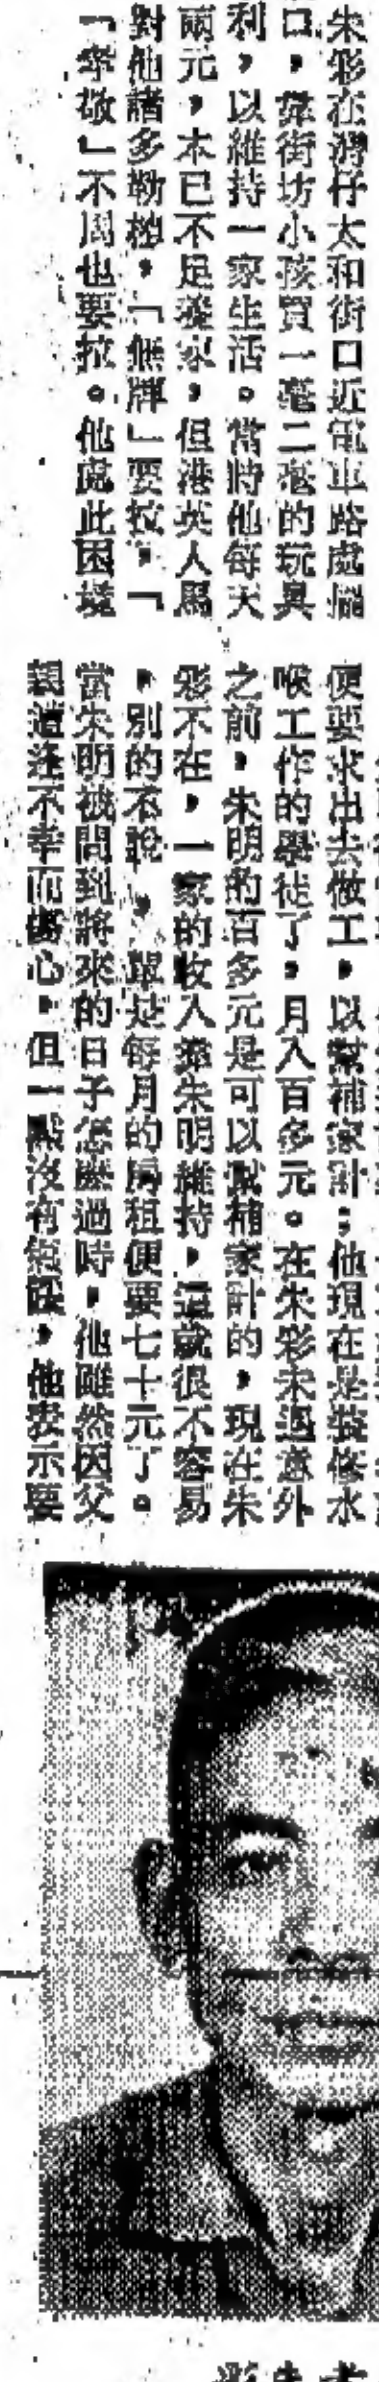 朱彩在灣仔太和街口近電車路處擺
口,靠街坊小孩買一毫二毫的玩具
利,以維持一家生活。當時他每天
兩元,本已不足養家,但港英人馬
對他諸多勒榨,「無牌」要拉,「
「孝敬」不周也要拉。他處此困境
便要求出去做工,以幫補家計;他現在是裝修水
喉工作的學徒了,月入百多元。在朱彩未遇意外
之前,朱明的百多元是可以幫補家計的,現在朱
彩不在,一家的收入靠朱明維持,這就很不容易
,別的不說,單是每月的房租便要七十元了。
當朱明被問到將來的日子怎麼過時,他雖然因父
親遭逢不幸而傷心,但一點沒有氣餒,他表示要
朱彩